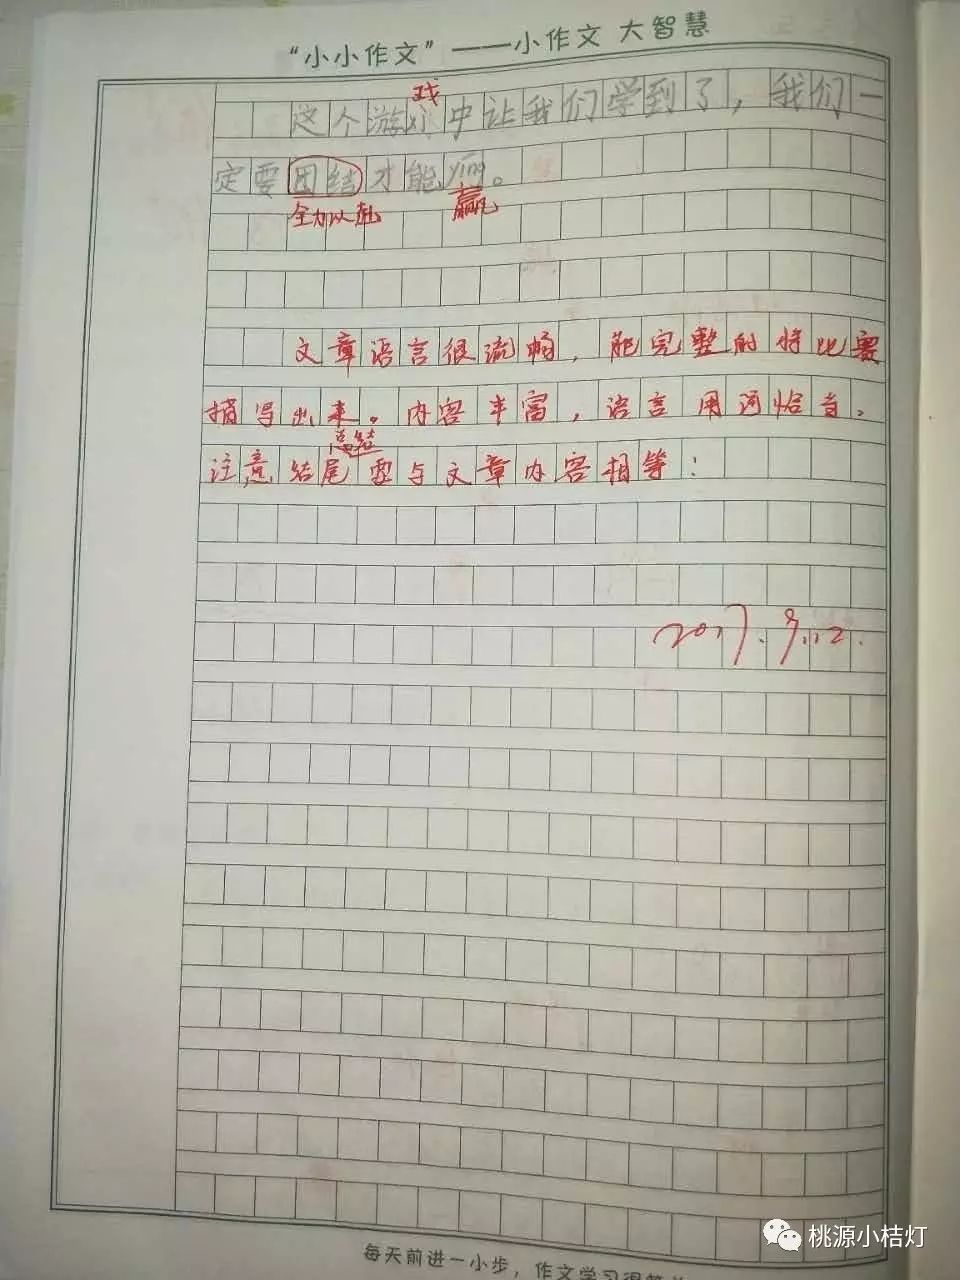 “小小作文”——小作文 大智慧
戏
这个游中让我们学到了，我们一
定要团结才能ying。
全力以赴 赢
文章语言很流畅，能完整的将比赛
描写出来。内容丰富，语言用词恰当。
总结
注意结尾要与文章内容相等！
2017.9.12.
每天前进一小步，作文学习很
桃源小桔灯